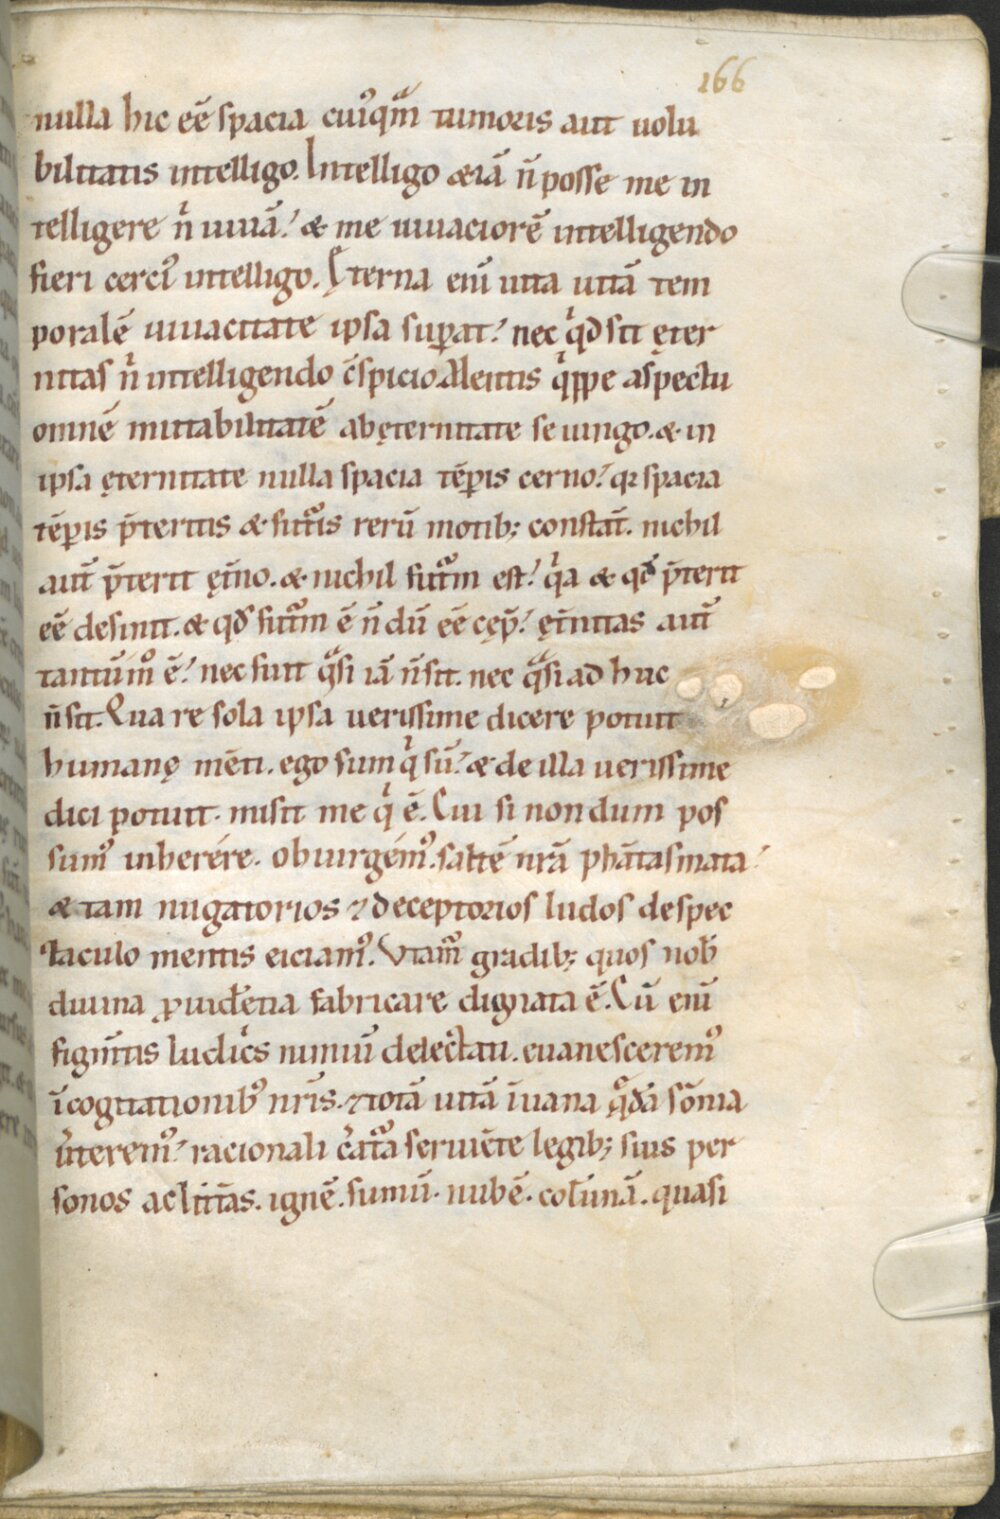 166
nulla hic eē spacia cuiꝰqᷓm tumoris aut uolu
bilitatis intelligo. Intelligo &iā ñ posse me in
telligere ñ uiuā. & me uiuaciorē intelligendo
fieri cerciꝰ intelligo. Ęterna eni̅ uita uitā tem
poralē uiuacitate ipsa suꝑat. nec qͥd sit ęter
nitas nͥ intelligendo c̄spicio. Mentis qͥppe aspectu
omnē mutabilitatē ab ęternitate seiungo. & in
ipsa ęternitate nulla spacia tēꝑis cerno. qꝛ spacia
tēꝑis p̄teritis & futᷓis rerū motibꝫ constāt. nichil
aut̄ p̄terit ęt̄no. & nichil futᷓm est. qͥa & qđ p̄terit
eē desinit. & qđ futᷓm ē ñ dū eē cęꝑ̄. ęt̄nitas aut̄
tantūmͦ ē. nec fuit qᷓsi iā ñ sit. nec qᷓsi ad huc
ñ sit. Qua re sola ipsa uerissime dicere potuit
humanę mēti. ego sum qͥ sū. & de illa uerissime
dici potuit. misit me qͥ ē. Cui si non dum pos
sumꝰ inherére. obiurgémꝰ saltē nr̄a phātasmata.
& tam nugatorios ⁊ deceptorios ludos de spec
taculo mentis eiciamꝰ. Vtam̄ gradibꝫ quos nob̄
diuina ꝓuiđentia fabricare dignata ē. Cū eni̅
figm̄tis ludicͥs nimiū delectati. euanesceremꝰ
ī cogitationibꝰ nr̄is. ⁊ totā uitā ī uana qᷓdā sōnia
uͥteremꝰ. racionali c̄atᷓa seruiēte legibꝫ suis per
sonos ac litt̄as. ignē. fumū. nubē. colūnā. quasi